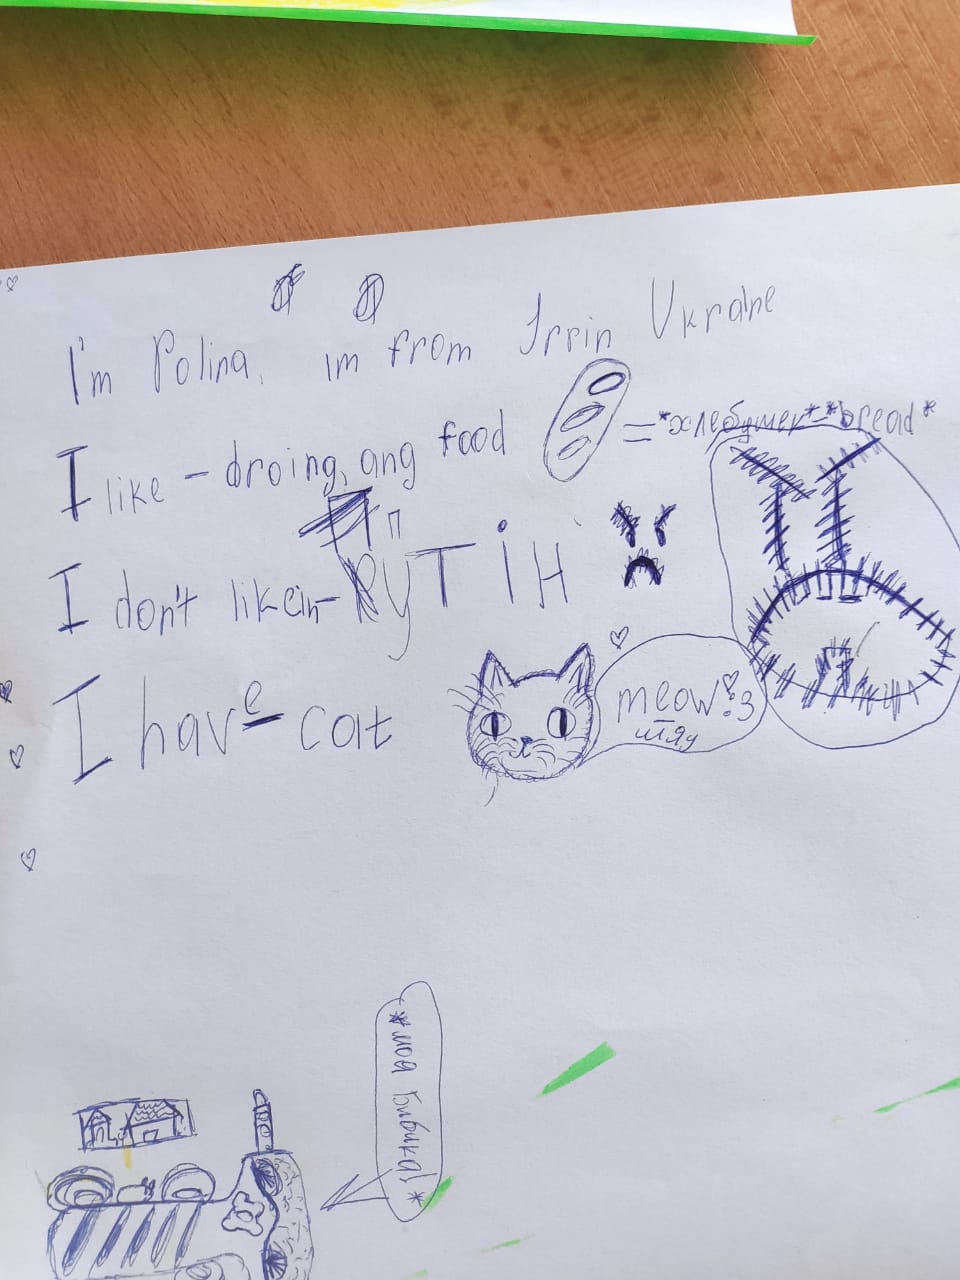 I'm Polina, im from Irrin Ukraine
I like - droing, ang food = *хлебушек* *bread*
I don't like - Путін
I have cat
meow!:3
мяу
*моя Бибика!*